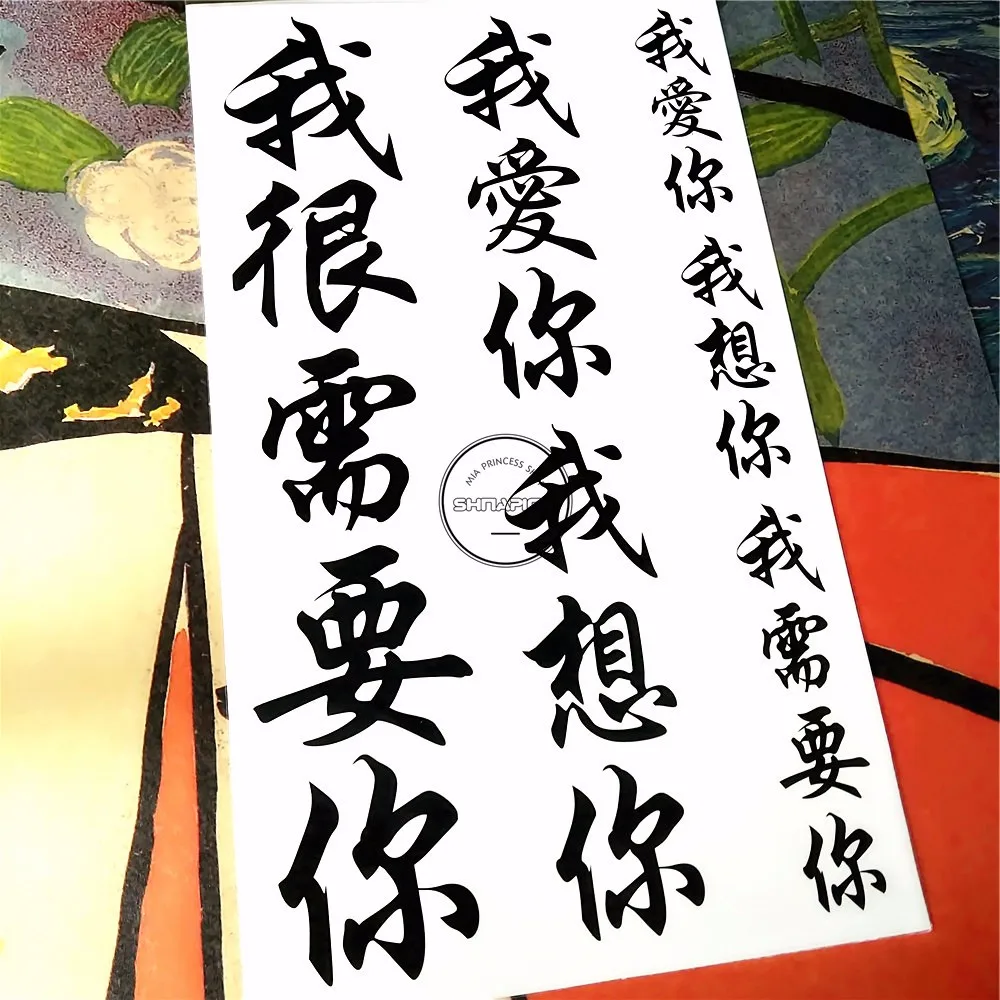 我很需要你
我愛你
我想你
我愛你
我想你
我需要你
MIA PRINCESS